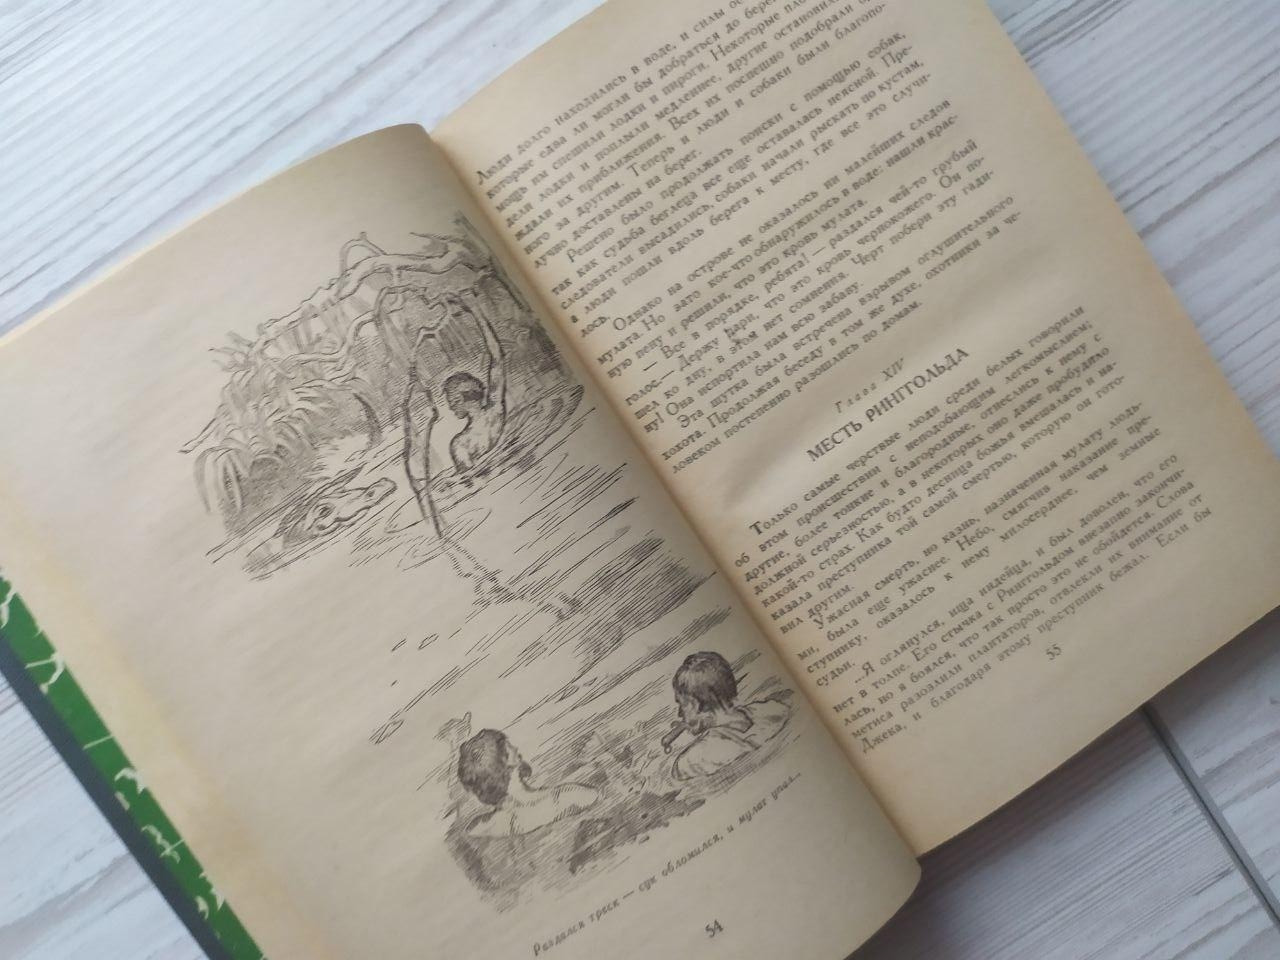 Раздался треск — сук обломился, и мулат упал...
54
Люди долго находились в воде, и силы
которые едва ли могли бы добраться до
мощь им спешили лодки и пироги. Некоторые
дели лодки и поплыли медленнее, другие остановились,
ждали их приближения. Всех их поспешно подобрали
ного за другим. Теперь и люди и собаки были благопо-
лучно доставлены на берег.
Решено было продолжать поиски с помощью собак,
так как судьба беглеца все еще оставалась неясной. Пре-
следователи высадились, собаки начали рыскать по кустам,
а люди пошли вдоль берега к месту, где все это случи-
лось.
Однако на острове не оказалось ни малейших следов
мулата. Но зато кое-что обнаружилось в воде: нашли крас-
ную пену и решили, что это кровь мулата.
— Все в порядке, ребята! — раздался чей-то грубый
голос. — Держу пари, что это кровь чернокожего. Он по-
шел ко дну, в этом нет сомнения. Черт побери эту гади-
ну! Она испортила нам всю забаву.
Эта шутка была встречена взрывом оглушительного
хохота. Продолжая беседу в том же духе, охотники за че-
ловеком постепенно разошлись по домам.
Глава XIV
МЕСТЬ РИНГГОЛЬДА
Только самые черствые люди среди белых говорили
об этом происшествии с неподобающим легкомыслием;
другие, более тонкие и благородные, отнеслись к нему с
должной серьезностью, а в некоторых оно даже пробудило
какой-то страх. Как будто десница божья вмешалась и на-
казала преступника той самой смертью, которую он гото-
вил другим.
Ужасная смерть, но казнь, назначенная мулату людь-
ми, была еще ужаснее. Небо, смягчив наказание пре-
ступнику, оказалось к нему милосерднее, чем земные
судьи.
...Я оглянулся, ища индейца, и был доволен, что его
нет в толпе. Его стычка с Ринггольдом внезапно закончи-
лась, но я боялся, что так просто это не обойдется. Слова
метиса разозлили плантаторов, отвлекли их внимание от
Джека, и благодаря этому преступник бежал. Если бы
55